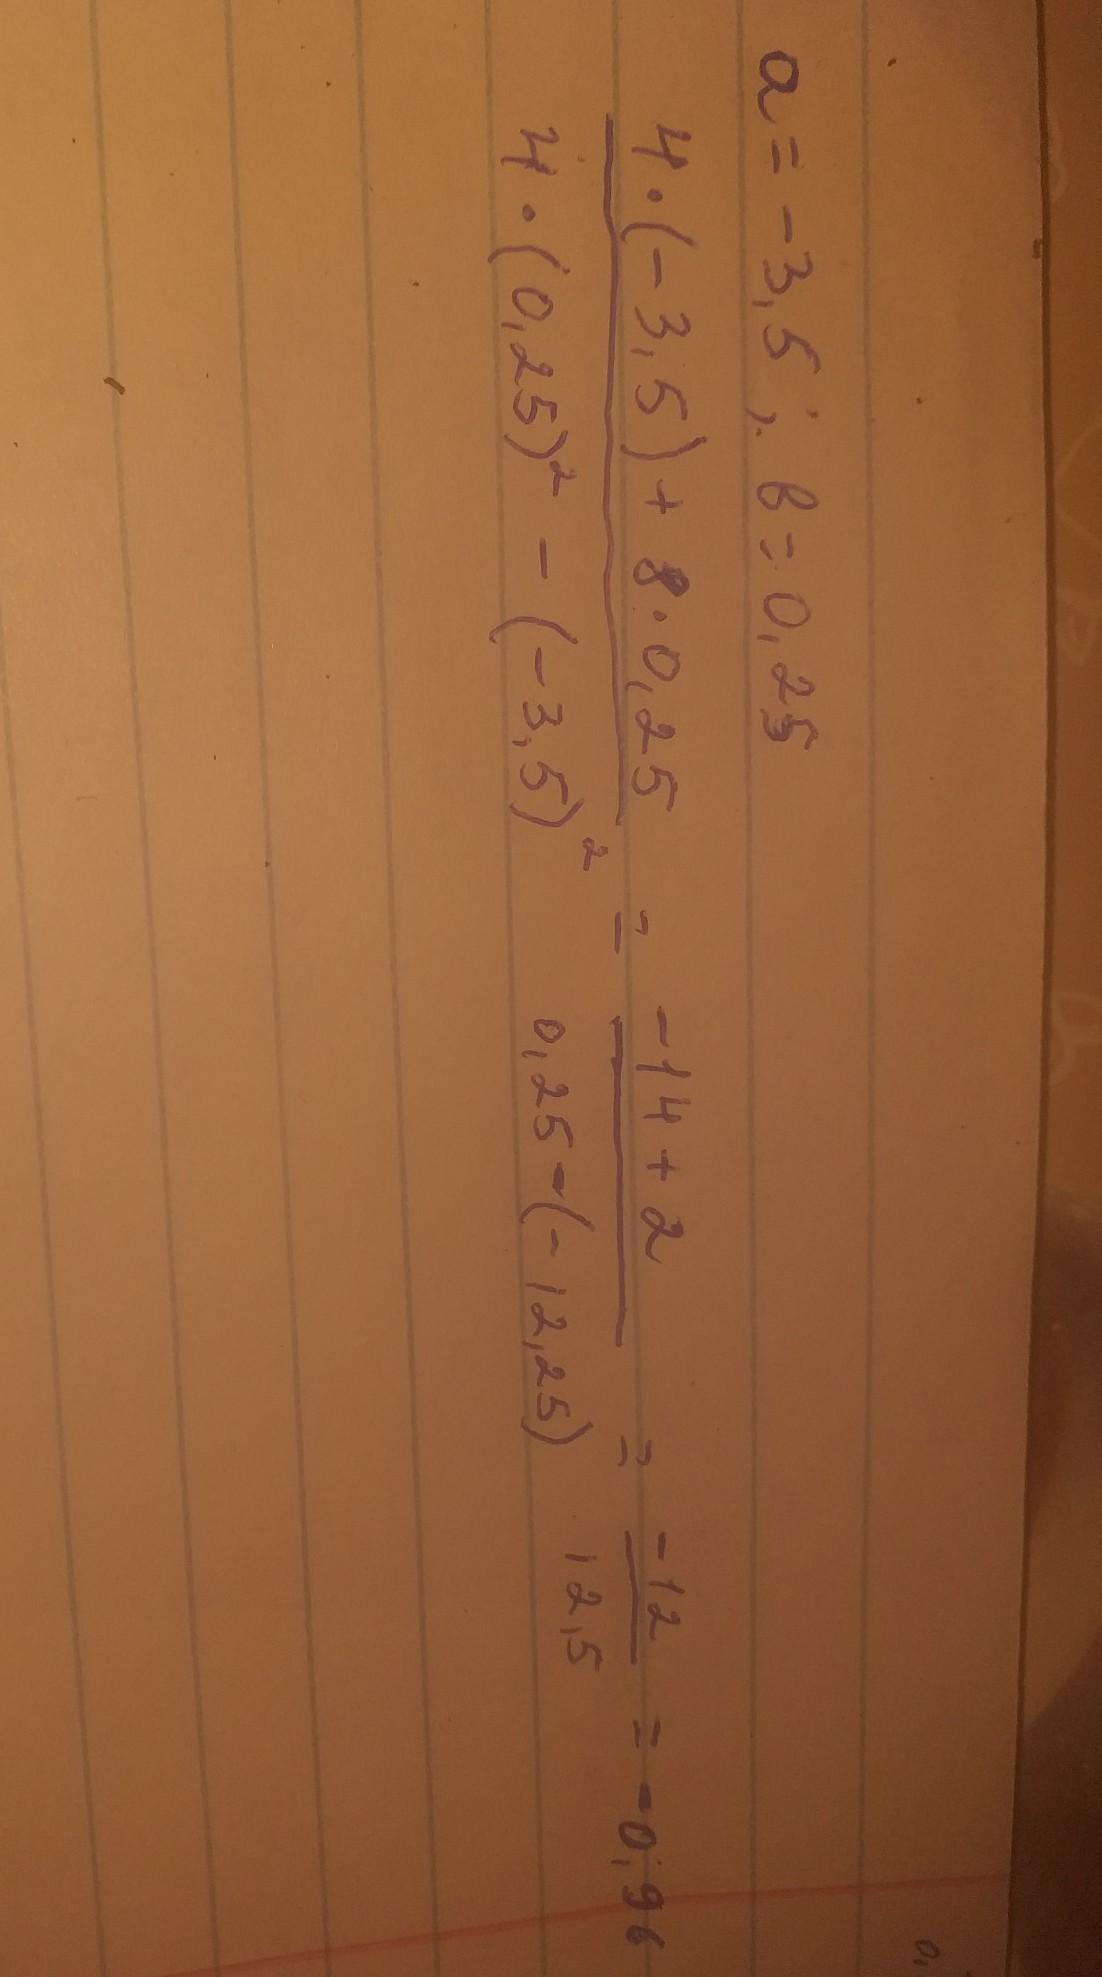 a = -3,5; b = 0,25
4·(-3,5) + 8·0,25 / 4·(0,25)² - (-3,5)² = -14 + 2 / 0,25 - (-12,25) = -12 / 12,5 = -0,96
0,